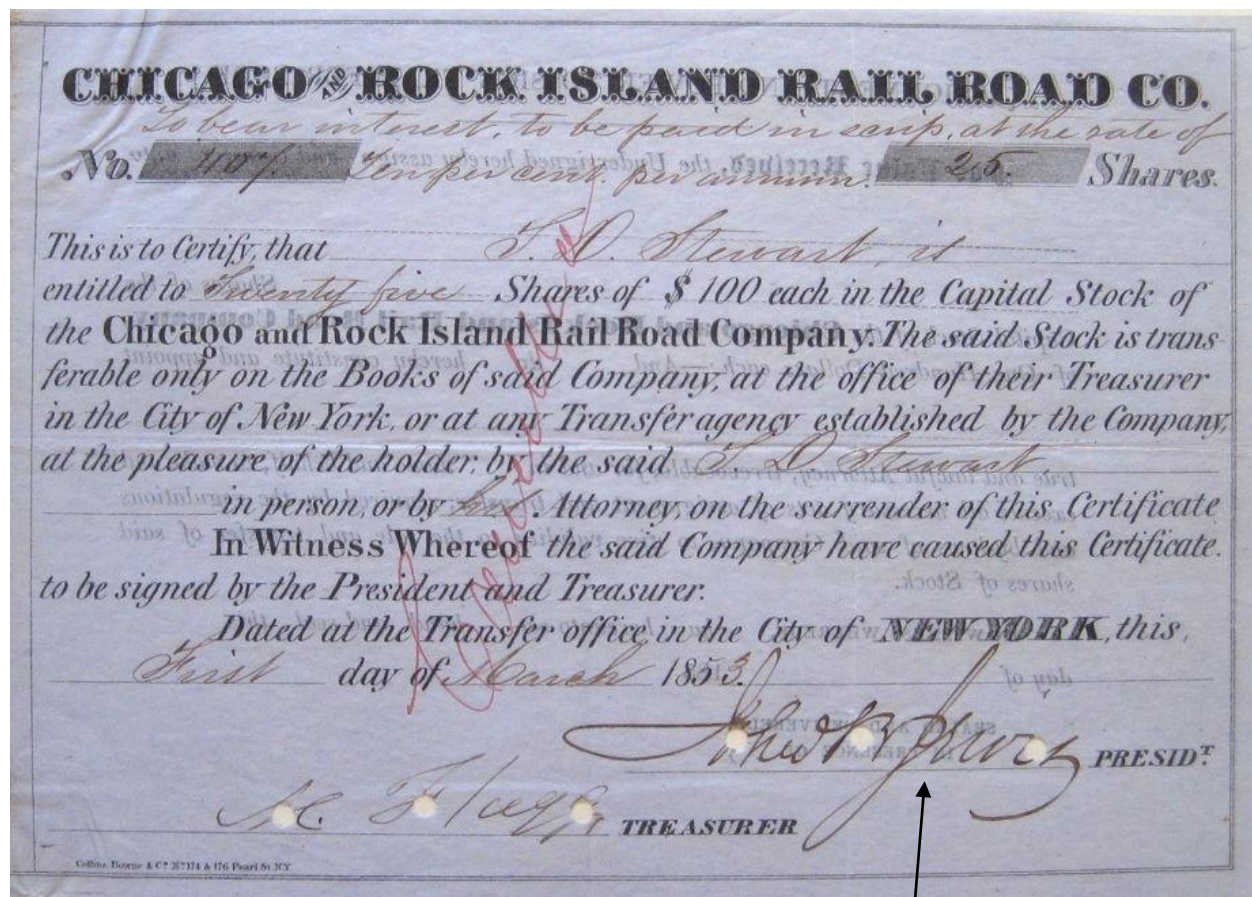 CHICAGO AND ROCK ISLAND RAIL ROAD CO.
To bear interest, to be paid in scrip, at the rate of
No. 407. Ten per cent. per annum. 25. Shares.
This is to Certify, that T. D. Stewart, is
entitled to Twenty five Shares of $100 each in the Capital Stock of
the Chicago and Rock Island Rail Road Company. The said Stock is trans-
ferable only on the Books of said Company, at the office of their Treasurer
in the City of New York, or at any Transfer agency established by the Company,
at the pleasure of the holder, by the said T. D. Stewart,
in person, or by his Attorney, on the surrender of this Certificate
In Witness Whereof the said Company have caused this Certificate.
to be signed by the President and Treasurer.
Dated at the Transfer office, in the City of NEW YORK, this,
First day of March 1853.
John B Jervis PRESIDT.
A. C. Flagg TREASURER
Collins, Bowne & Co. No. 174 & 176 Pearl St. N.Y.